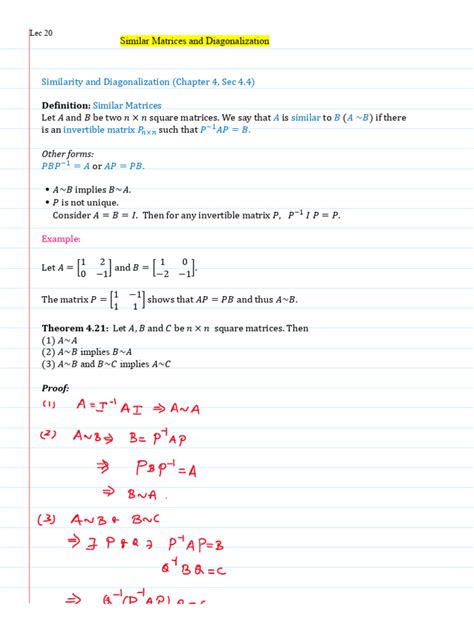 Lec 20
Similar Matrices and Diagonalization
Similarity and Diagonalization (Chapter 4, Sec 4.4)
Definition: Similar Matrices
Let A and B be two n × n square matrices. We say that A is similar to B (A ~B) if there
is an invertible matrix Pₙₓₙ such that P⁻¹AP = B.
Other forms:
PBP⁻¹ = A or AP = PB.
• A~B implies B~A.
• P is not unique.
Consider A = B = I. Then for any invertible matrix P, P⁻¹ I P = P.
Example:
Let A = [1 2; 0 −1] and B = [1 0; −2 −1].
The matrix P = [1 −1; 1 1] shows that AP = PB and thus A~B.
Theorem 4.21: Let A, B and C be n × n square matrices. Then
(1) A~A
(2) A~B implies B~A
(3) A~B and B~C implies A~C
Proof:
(1) A = I⁻¹ A I ⇒ A~A
(2) A~B ⇒ B = P⁻¹AP
⇒ PBP⁻¹ = A
⇒ B~A .
(3) A~B & B~C
⇒ ∃ P & Q ∋ P⁻¹AP = B
Q⁻¹BQ = C
⇒ Q⁻¹(P⁻¹AP) Q = C